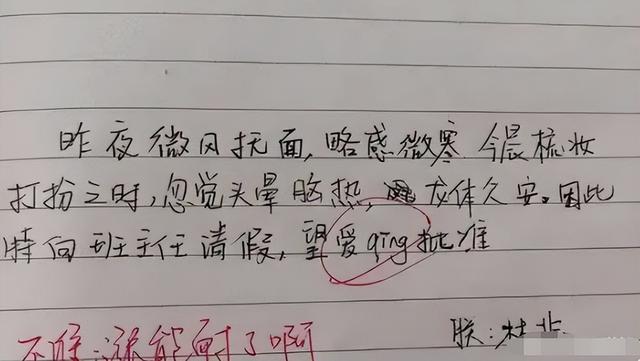 昨夜微风抚面,略感微寒 今晨梳妆
打扮之时,忽觉头晕脑热,龙体久安。因此
特向班主任请假,望爱qing批准
朕:杜
不准:涨能耐了啊